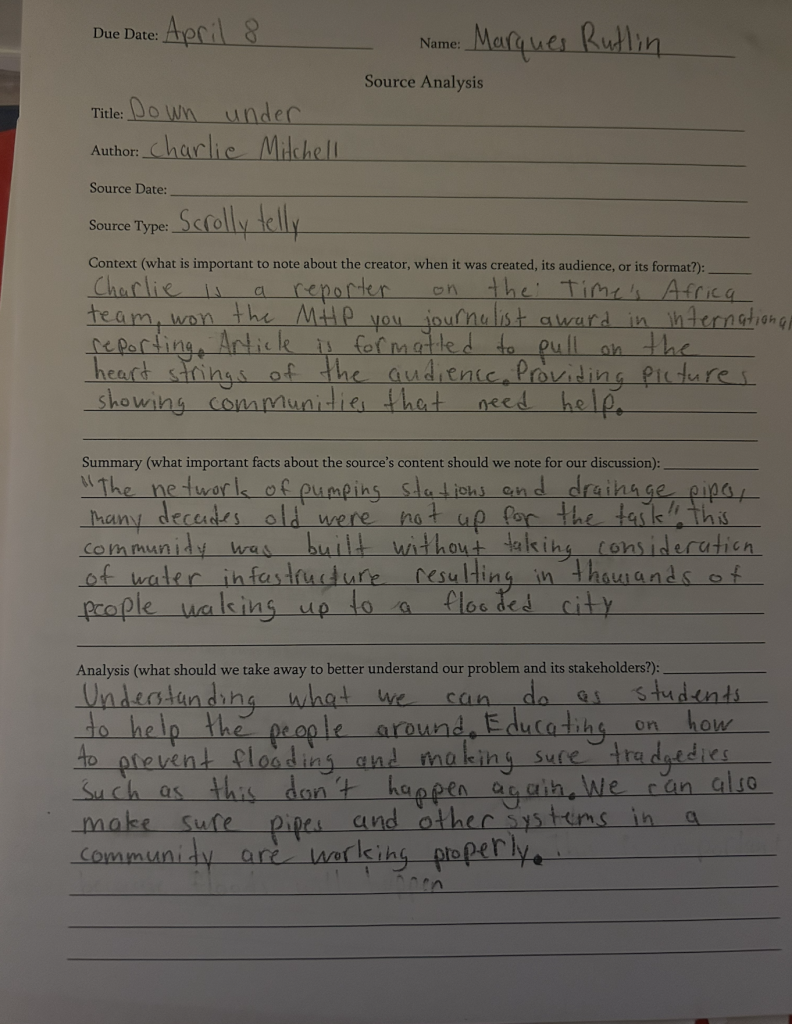 Due Date: April 8 Name: Marques Rutlin
Source Analysis
Title: Down under
Author: Charlie Mitchell
Source Date:
Source Type: Scrolly telly
Context (what is important to note about the creator, when it was created, its audience, or its format?):
Charlie is a reporter on the Time's Africa
team, won the MHP you journalist award in international
reporting. Article is formatted to pull on the
heart strings of the audience. Providing pictures
showing communities that need help.
Summary (what important facts about the source's content should we note for our discussion):
"The network of pumping stations and drainage pipes,
many decades old were not up for the task". This
community was built without taking consideration
of water infastructure resulting in thousands of
people waking up to a flooded city
Analysis (what should we take away to better understand our problem and its stakeholders?):
Understanding what we can do as students
to help the people around. Educating on how
to prevent flooding and making sure tradgedies
such as this don't happen again. We can also
make sure pipes and other systems in a
community are working properly.